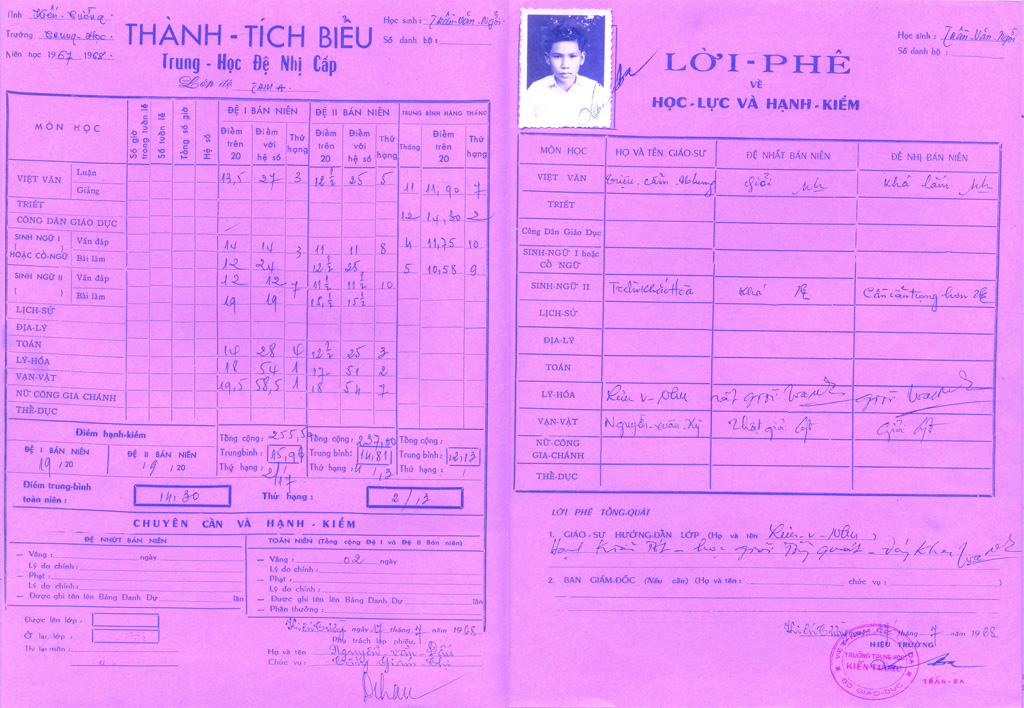 Tỉnh Kiến Tường
Trường Trung-Học
Niên học 1967 1968
THÀNH - TÍCH BIỂU
Trung - Học Đệ Nhị Cấp
Lớp đệ TAM A
Học sinh : Trần Văn Ngỗi
Số danh bộ :
MÔN HỌC
Số giờ trong tuần lễ
Số tuần lễ
Tổng số giờ
Hệ số
ĐỆ I BÁN NIÊN
ĐỆ II BÁN NIÊN
TRUNG BÌNH HÀNG THÁNG
Điểm trên 20
Điểm với hệ số
Thứ hạng
Điểm trên 20
Điểm với hệ số
Thứ hạng
Tháng
Điểm trên 20
Thứ hạng
VIỆT VĂN
Luận 13,5 27 3 12 1/2 25 5
Giảng 11 11,90 7
TRIẾT
CÔNG DÂN GIÁO DỤC 12 14,30 2
SINH NGỮ I ( ) HOẶC CỔ-NGỮ
Vấn đáp 14 14 3 11 11 8 4 11,75 10
Bài làm 12 24 12 1/2 25 5 10,58 9
SINH NGỮ II ( )
Vấn đáp 12 12 7 11 1/2 11 1/2 10
Bài làm 19 19 15 1/2 15 1/2
LỊCH-SỬ
ĐỊA-LÝ
TOÁN 14 28 4 12 1/2 25 3
LÝ-HÓA 18 54 1 17 51 2
VẠN-VẬT 19,5 58,5 1 18 54 7
NỮ CÔNG GIA CHÁNH
THỂ-DỤC
Điểm hạnh-kiểm
ĐỆ I BÁN NIÊN ĐỆ II BÁN NIÊN
19 / 20 19 / 20
Tổng cộng : 255,50 Tổng cộng : 237,00 Tổng cộng :
Trung bình : 15,96 Trung bình : 14,81 Trung bình : 12,13
Thứ hạng : 2/17 Thứ hạng : Thứ hạng : /
Điểm trung-bình toàn niên : 14,30 Thứ hạng : 2/13
CHUYÊN CẦN VÀ HẠNH - KIỂM
ĐỆ NHỨT BÁN NIÊN
— Vắng : ngày
Lý do chính :
— Phạt :
Lý do chính :
— Được ghi tên lên Bảng Danh Dự lần
TOÀN NIÊN (Tổng cộng Đệ I và Đệ II Bán niên)
— Vắng : 02 ngày
Lý do chính :
— Phạt :
Lý do chính :
— Được ghi tên lên Bảng Danh Dự lần
— Phần thưởng :
Được lên lớp :
Ở lại lớp :
Thi lại môn :
Kiến Tường ngày 17 tháng 7 năm 1968
Phụ trách lập phiếu,
Họ và tên Nguyễn Văn
Chức vụ : Tổng Giám Thị
Học sinh : Trần Văn Ngỗi
Số danh bộ :
LỜI - PHÊ
VỀ
HỌC - LỰC VÀ HẠNH - KIỂM
MÔN HỌC HỌ VÀ TÊN GIÁO-SƯ ĐỆ NHẤT BÁN NIÊN ĐỆ NHỊ BÁN NIÊN
VIỆT VĂN Triệu Cẩm Nhung Giỏi Nh Khá lắm Nh
TRIẾT
Công Dân Giáo Dục
SINH-NGỮ I hoặc CỔ NGỮ
SINH-NGỮ II Khá Cần cẩn trọng hơn
LỊCH-SỬ
ĐỊA-LÝ
TOÁN
LÝ-HÓA rất giỏi giỏi
VẠN-VẬT Nguyễn Xuân Kỷ Thật giỏi Giỏi
NỮ-CÔNG GIA-CHÁNH
THỂ-DỤC
LỜI PHÊ TỔNG-QUÁT
1. GIÁO-SƯ HƯỚNG-DẪN LỚP (Họ và tên )
Hạnh kiểm tốt - học giỏi tổng quát - đáng khen
2. BAN GIÁM-ĐỐC (Nếu cần) (Họ và tên : chức vụ : )
Kiến Tường ngày tháng 7 năm 1968
HIỆU TRƯỞNG
TRƯỜNG TRUNG HỌC
KIẾN TƯỜNG
BỘ GIÁO-DỤC
TRẦN-BA